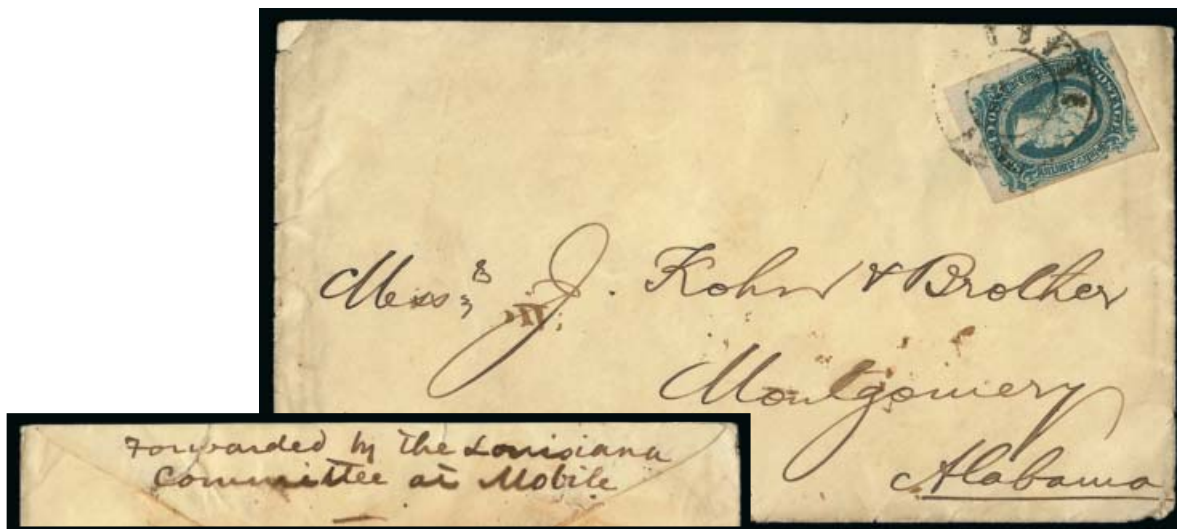 Mess^rs J. Kohn & Brother
Montgomery
Alabama
Forwarded by the Louisiana
Committee at Mobile